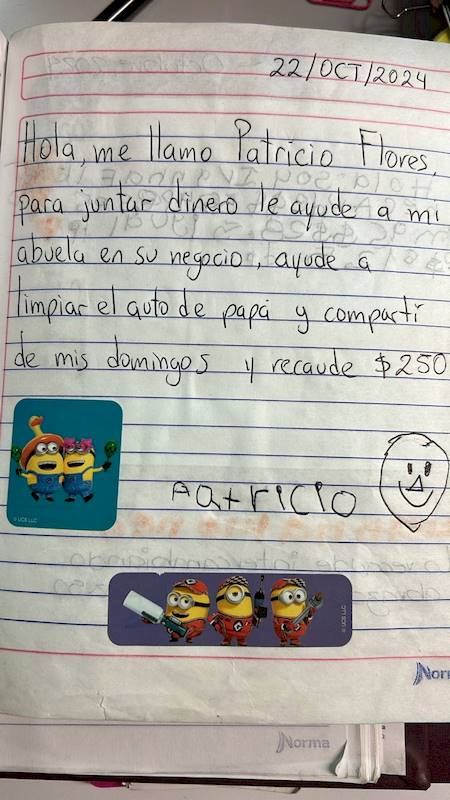 22/OCT/2024
Hola, me llamo Patricio Flores,
para juntar dinero le ayude a mi
abuela en su negocio, ayude a
limpiar el auto de papá y compartí
de mis domingos y recaude $250
Patricio
© UCS LLC
© UCS LLC
Norma
Norma